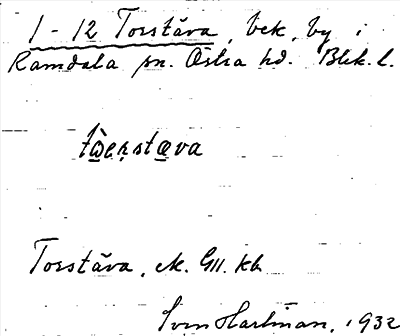 1 - 12 Torstäva, bek. by i
Ramdala sn. Östra hd. Blek. l.
tɷ̀erstæva
Torstäva, ek. GII. kb
Sven Hartman, 1932